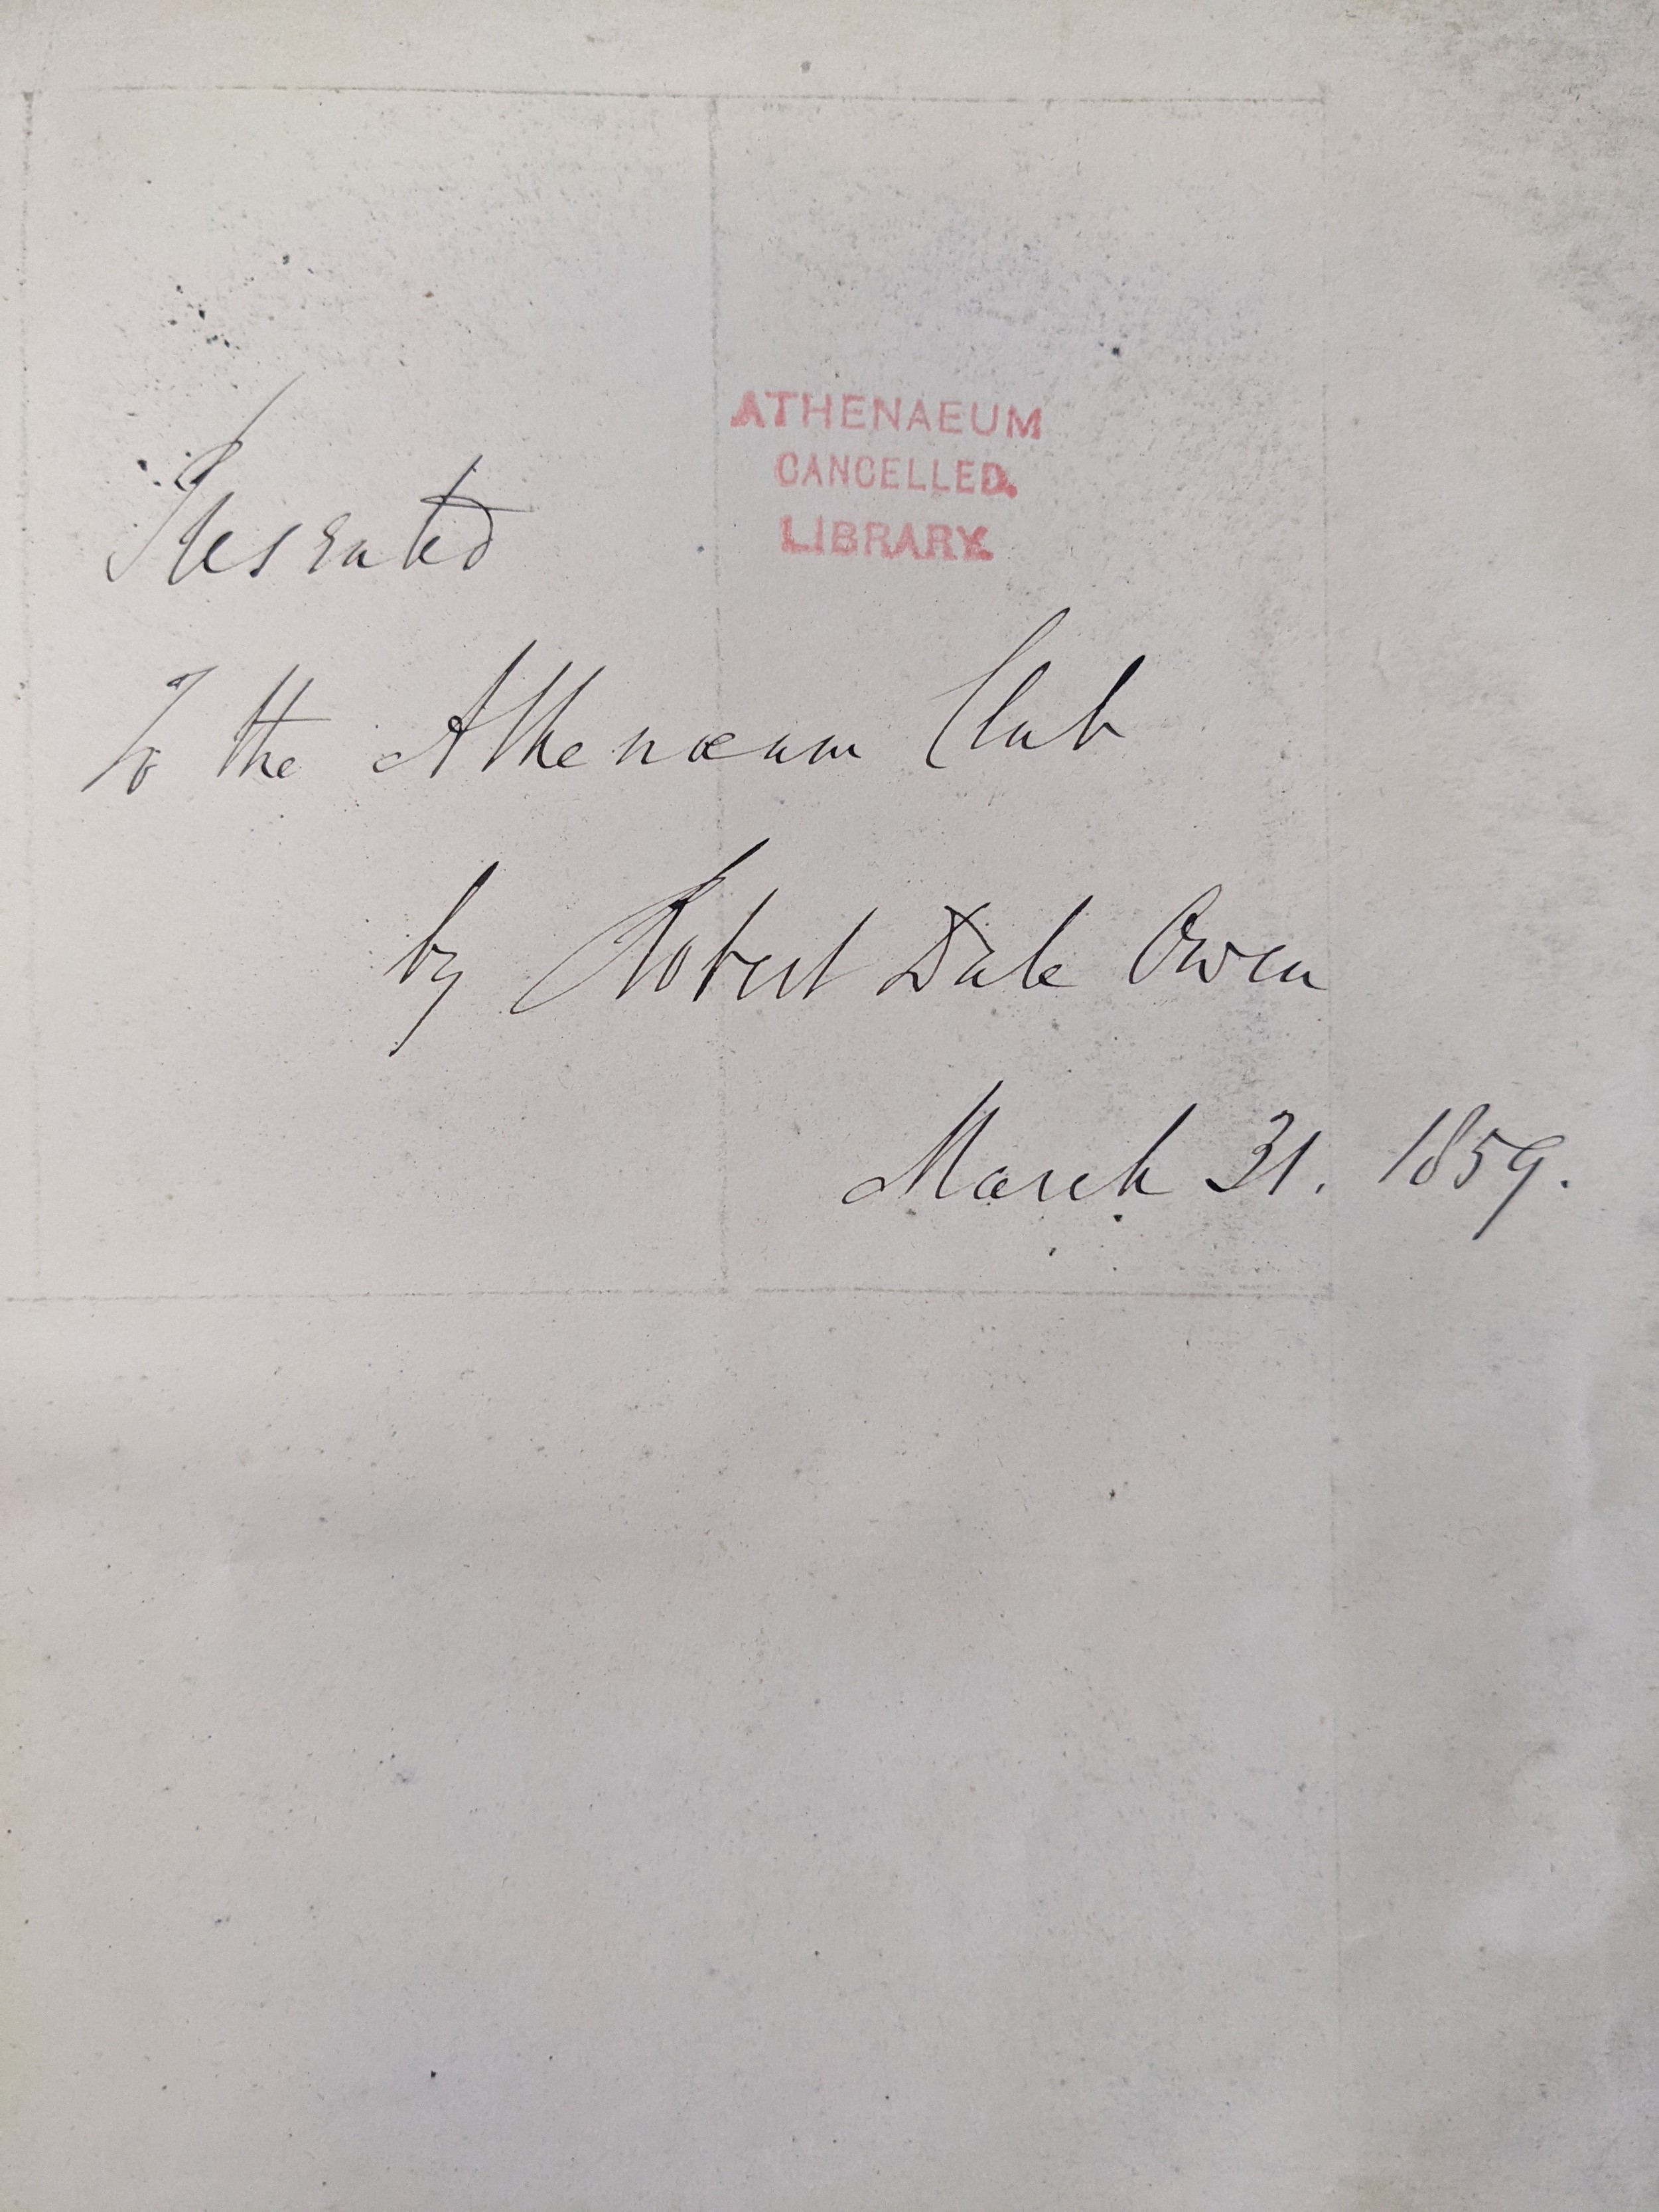 ATHENAEUM
CANCELLED.
LIBRARY.
Presented
To the Athenæum Club
by Robert Dale Owen
March 31. 1859.